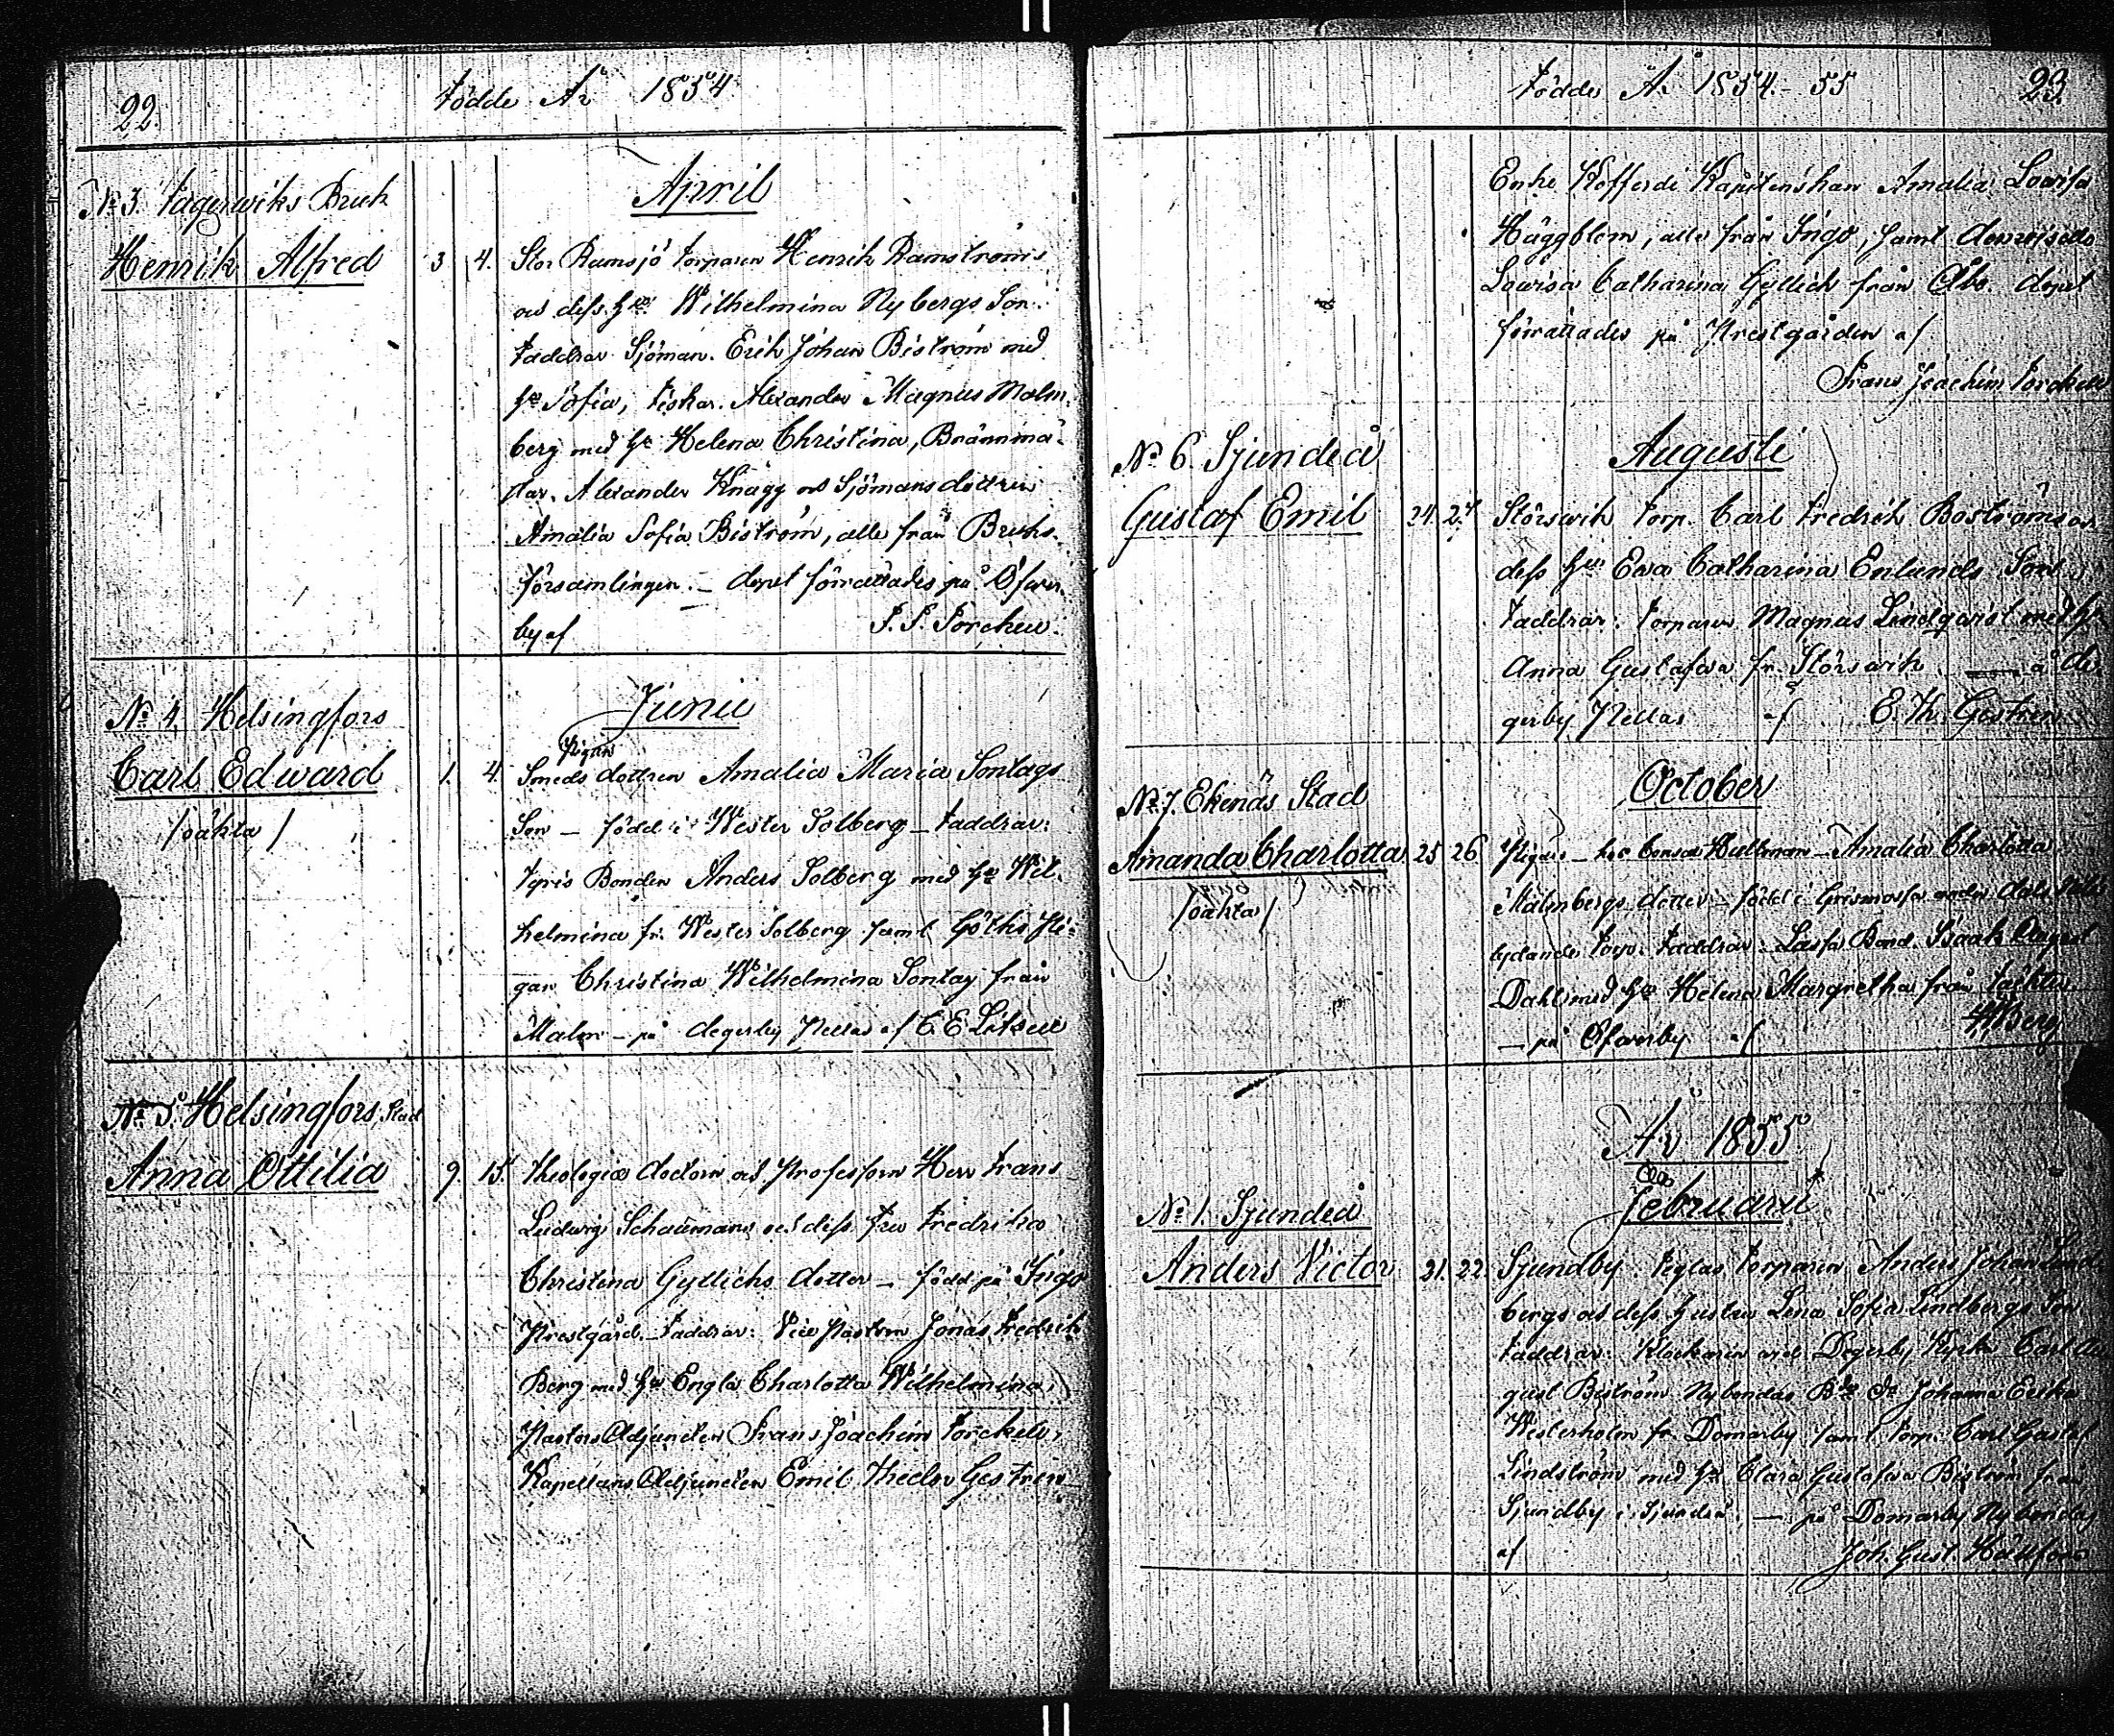 22.
Födde År 1854
April
No 3. Fagerwiks Bruk
Henrik Alfred 3 4. Stor Ramsjö torparen Henrik Ramströms
och dess Hu Wilhelmina Nybergs Son.
Faddrar Sjöman. Erik Johan Biström med
Hu Sofia, Fiskar. Alexander Magnus Malm-
berg med Hu Helena Christina, Brännmä-
star. Alexander Knagg och Sjömansdottren
Amalia Sofia Biström, alle från Bruks-
församlingen. – dopet förrättades på Öfwer-
by af F. J. Forckell.
Junii
No 4. Helsingfors
Pigan
Carl Edward 1. 4. Smeds dottren Amalia Maria Sontags
/oäkta/
Son – född i Wester Solberg – Faddrar:
Bonden Anders Solberg med Hu Wil-
helmina fr. Wester Solberg samt Pi-
gan Christina Wilhelmina Sontag från
Malm – på degerby Pellas af C. E.
No 5. Helsingfors Stad
Anna Ottilia 9. 15. Theologiæ doctorn och Professorn Herr Frans
Ludwig Schaumans och dess Fru Fredrika
Christina Gyllichs dotter – född på Ingo
Prestgård. – Faddrar: Vice Pastorn Jonas Fredrik
Berg med Hu Engla Charlotta Wilhelmina,
Pastors Adjuncten Frans Joachim Forckell,
Kapellans Adjuncten Emil Theodor Gestrin
Födde År 1854 – 55
23.
Enke Kofferdi Kapitenskan Amalia Lowisa
Häggblom, alle från Ingo, samt demoiselle
Lowisa Catharina Gyllich från Åbo. dopet
förrättades på Prestgården af
Frans Joachim Forckell
Augusti
No 6. Sjundeå
Gustaf Emil 24. 27. Störswik torp. Carl Fredrik Boströms och
dess Hu Ewa Catharina Enlunds Son.
Faddrar: torparen Magnus Lindqwist med Hu
Anna Gustafwa fr. Störswik — å de-
gerby Pellas af E. Th. Gestrin
October
No 7. Ekenäs Stad
Amanda Charlotta 25 26 Pigan – hos Hultman – Amalia Charlotta
/oäkta/
Malmbergs dotter – född i under
lydande torp. Faddrar: Bond. Isaak August
Dahl med Hu Helena Margretha från
– på Öfwerby af Berg
År 1855
Februarii
No 1. Sjundeå
Anders Victor 21. 22. Sjundby torparen Anders Johan Lind-
bergs och dess hustru Lena Sofia Lindbergs Son
Faddrar: Klockaren wid Degerby Kyrka Carl Au-
gust Biström Nybondas Johanna Erika
Westerholm fr. Domarby samt torp. Carl Gustaf
Lindström med Hu Clara Gustafwa Biström från
Sjundby i Sjundeå. – på Domarby Nybondas
af Joh. Gust.